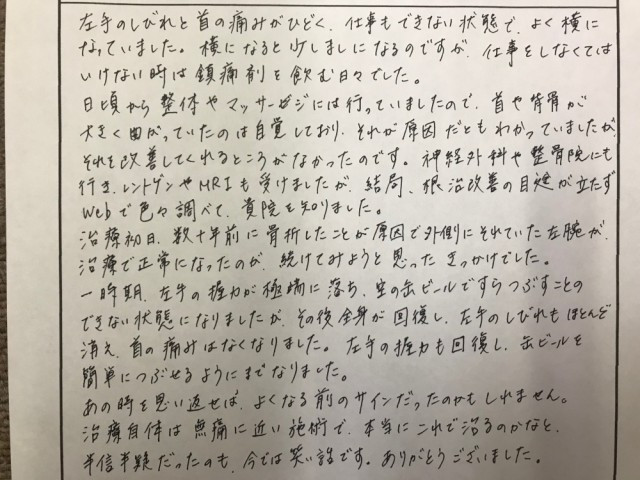 左手のしびれと首の痛みがひどく、仕事もできない状態で、よく横に
なっていました。横になると少しましになるのですが、仕事をしなくては
いけない時は鎮痛剤を飲む日々でした。
日頃から整体やマッサージには行っていましたので、首や背骨が
大きく曲がっていたのは自覚しており、それが原因だともわかっていましたが、
それを改善してくれるところがなかったのです。神経外科や整骨院にも
行き、レントゲンやMRIも受けましたが、結局、根治改善の目途が立たず
Webで色々調べて、貴院を知りました。
治療初日、数十年前に骨折したことが原因で外側にそれていた左腕が、
治療で正常になったのが、続けてみようと思ったきっかけでした。
一時期、左手の握力が極端に落ち、空の缶ビールですらつぶすことの
できない状態になりましたが、その後全身が回復し、左手のしびれもほとんど
消え、首の痛みはなくなりました。左手の握力も回復し、缶ビールを
簡単につぶせるようにまでなりました。
あの時を思い返せば、よくなる前のサインだったのかもしれません。
治療自体は無痛に近い施術で、本当にこれで治るのかなと、
半信半疑だったのも、今では笑い話です。ありがとうございました。